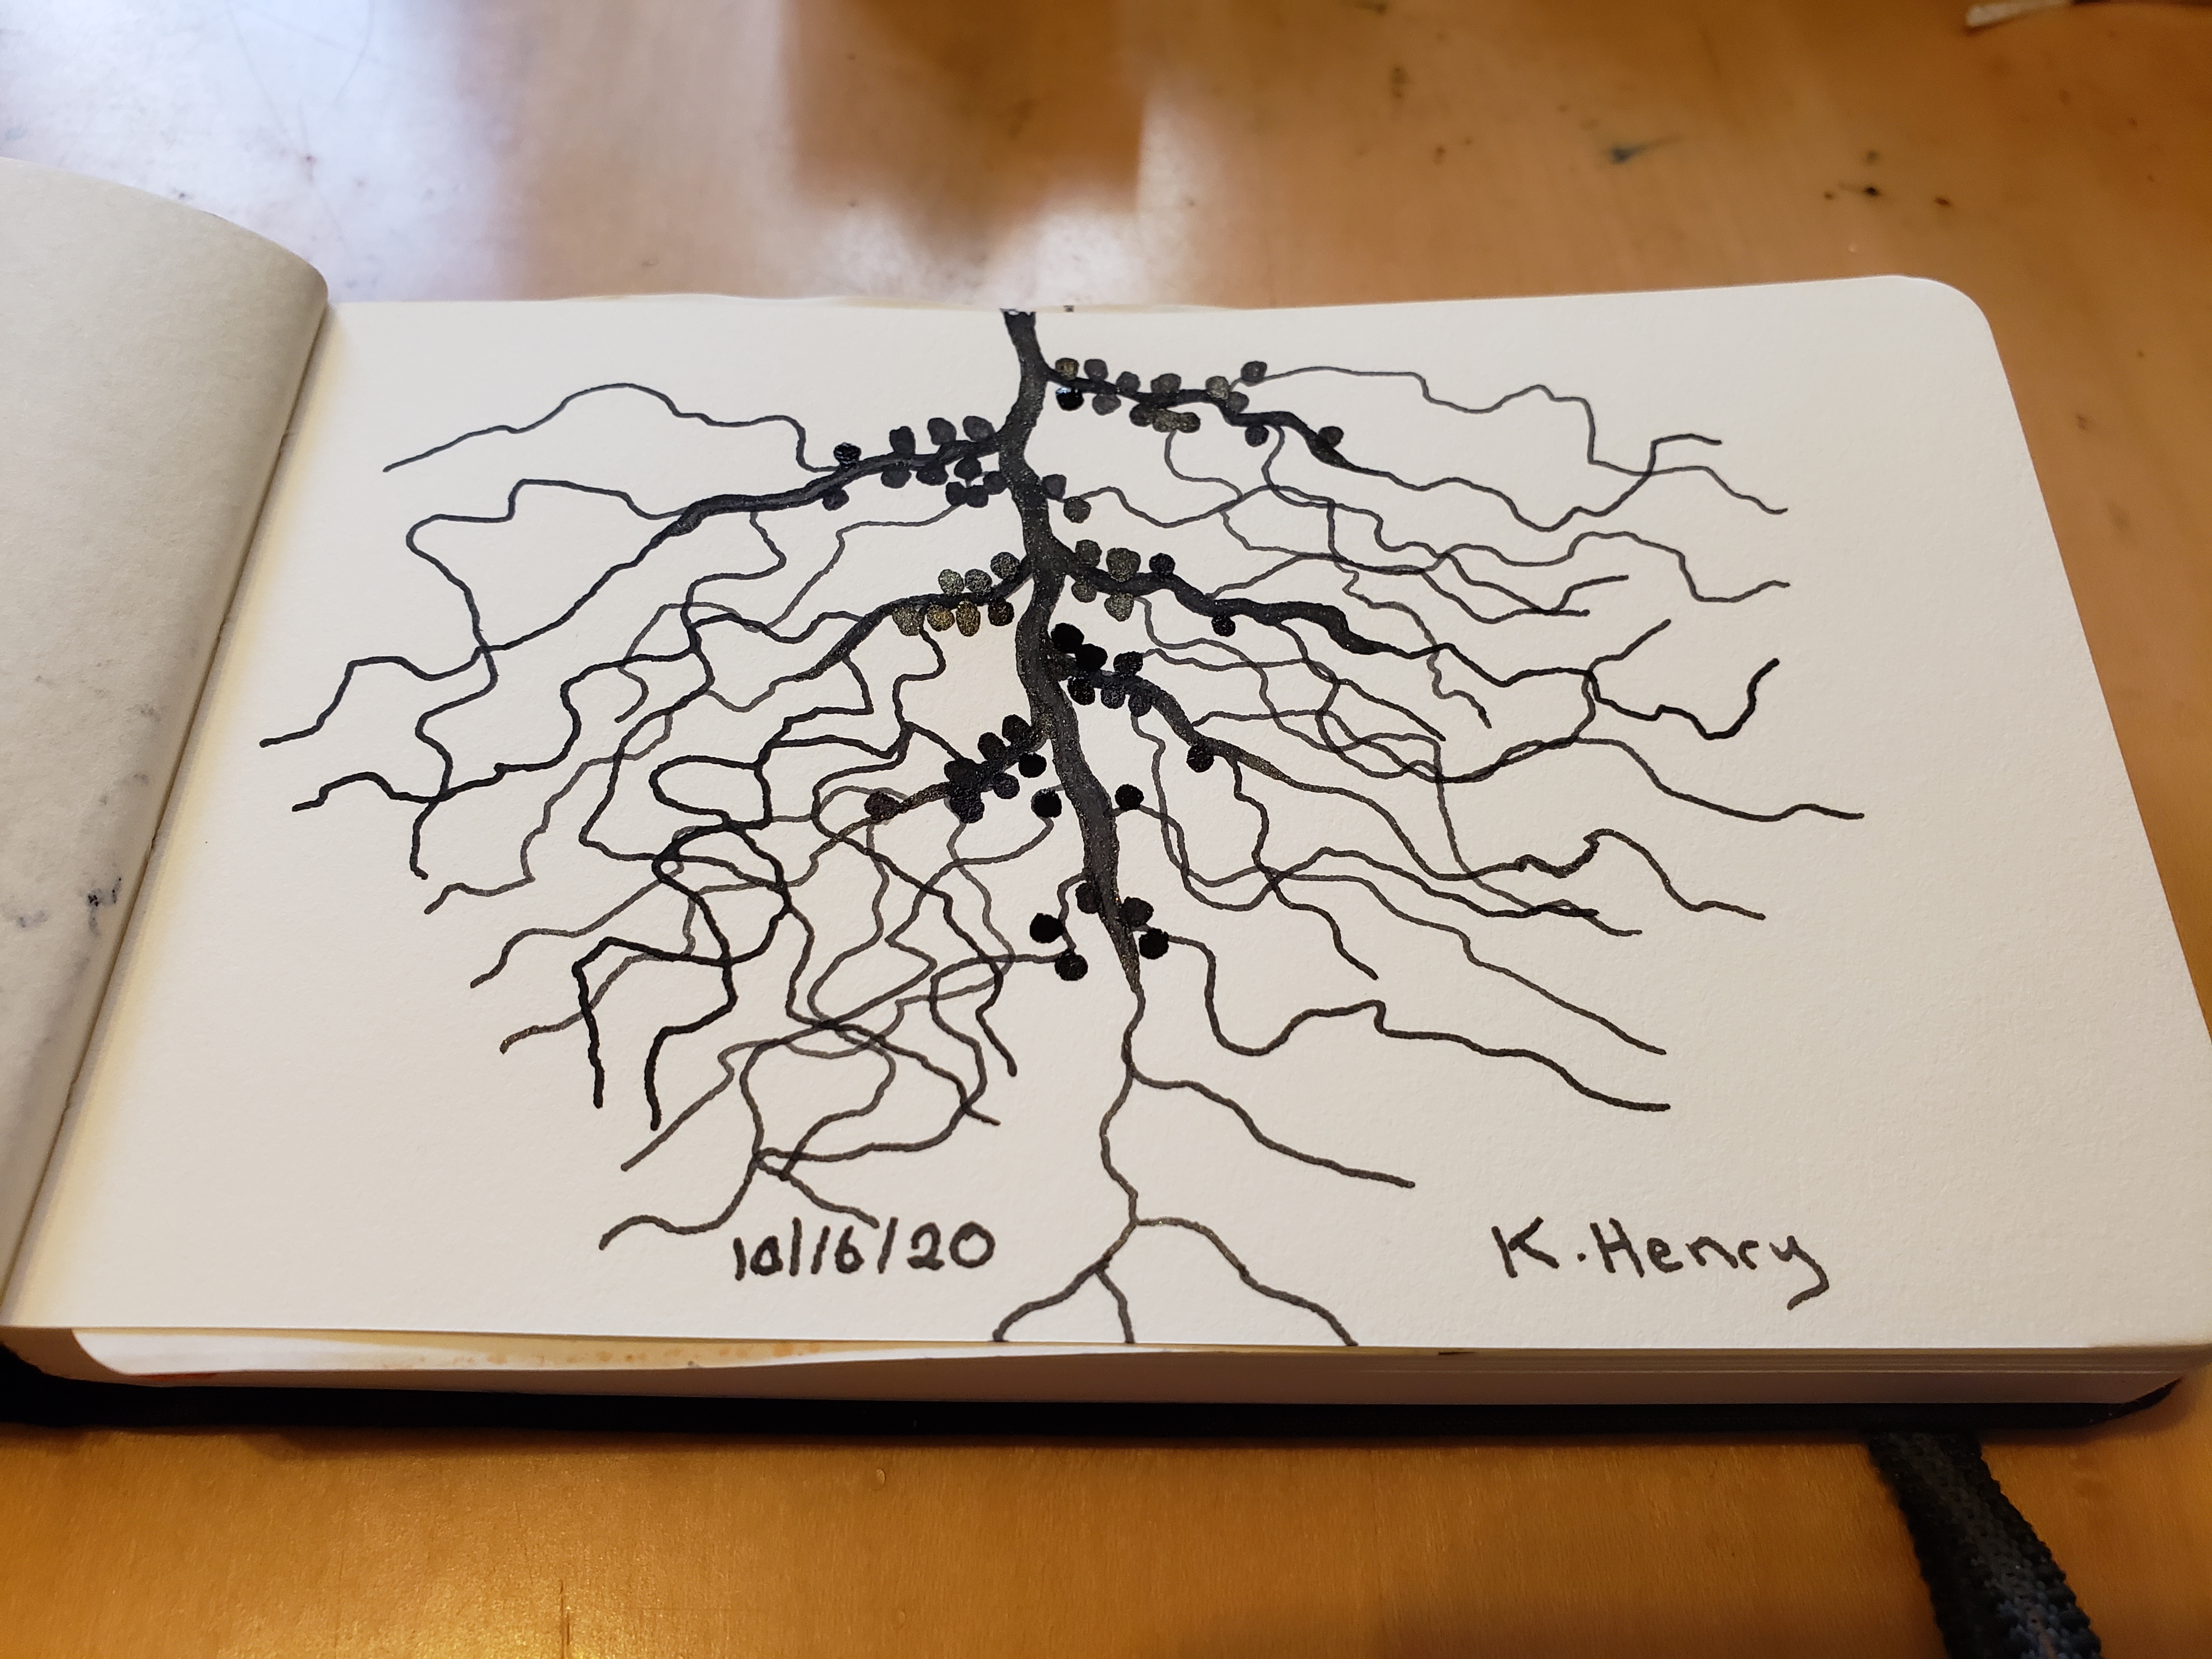 10/16/20
K. Henry